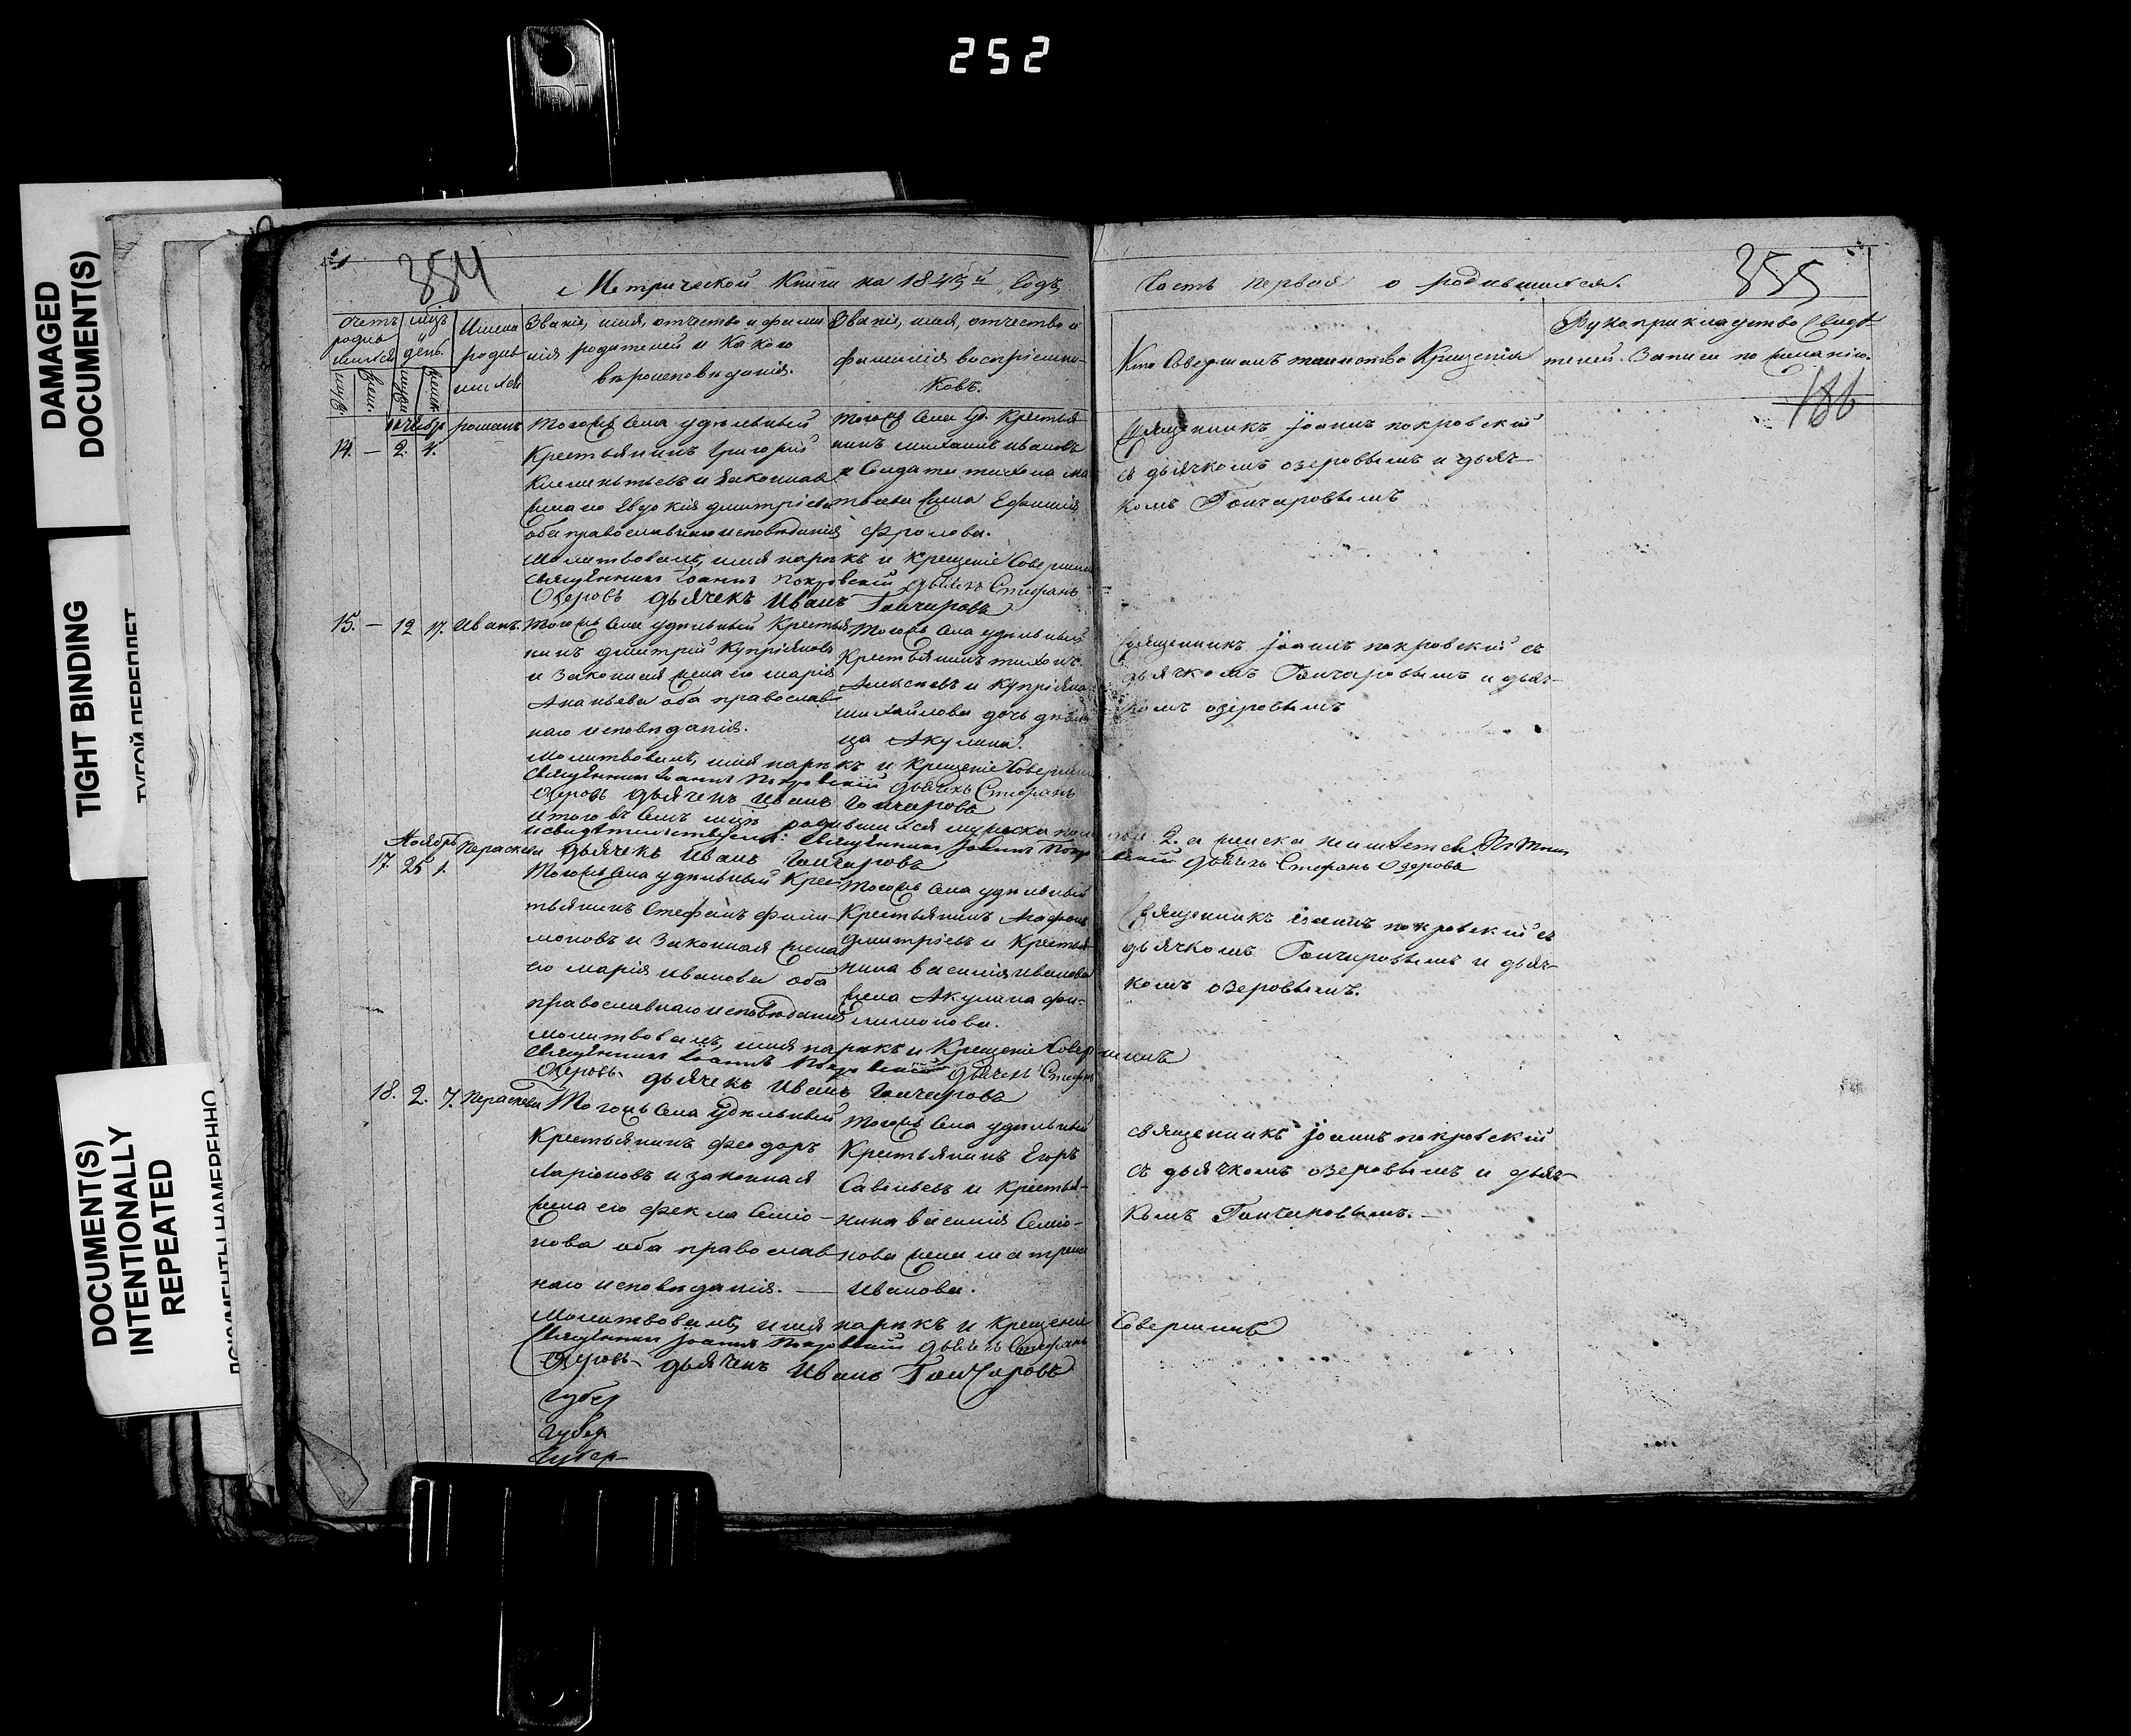 252
DAMAGED
DOCUMENT(S)
TIGHT BINDING
ТУГОЙ ПЕРЕПЛЕТ
DOCUMENT(S)
INTENTIONALLY
REPEATED
354
Метрической Книги на 1843й Годъ,
счетъ родившихся
мцъ и день
Имена родившихся
Званіе, имя, отчество и фами-
лія родителей и Какого
вѣроисповѣданія.
Званіе, имя, отчество и
фамилія воспріемни-
ковъ.
14. — 2. 4.
романъ
тогожъ села удѣльный
Крестьянинъ Григорій
Климентьевъ и законная
жена его Евдокія дмитріева
оба православнаго исповѣданія
тогожъ села уд. Крестья-
нинъ михаилъ ивановъ
и Солдата тихона ма
твѣева жена Ефимія
Фролова.
Молитвовалъ, имя нарѣкъ и крещеніе Совершилъ
священникъ Іоаннъ Покровскій дьячекъ Стефанъ
Озеровъ дьячекъ Иванъ Гончаровъ
15. — 12 17. Иванъ.
тогожъ села удѣльный Крестья
нинъ дмитрій Купріяновъ
и Законная жена его марія
Ананьева оба православ
наго исповѣданія.
тогожъ села удѣльный
Крестьянинъ тихонъ
Алексѣевъ и Купріяна
михайлова дочь дѣви
ца Акулина.
Молитвовалъ, имя нарѣкъ и Крещеніе Совершилъ
священникъ Іоаннъ Покровскій дьячекъ Стефанъ
Озеровъ дьячекъ Иванъ Гончаровъ
Итого въ семъ мцѣ родившихся мужеска пола 2. а женска
священникъ Іоаннъ Покровскій дьячекъ Стефанъ Озеровъ
дьячекъ Иванъ Гончаровъ
Ноябрь
17. 25 1.
Параскева
тогожъ села удѣльный Крес-
тьянинъ Стефанъ фили-
моновъ и Законная жена
его марія иванова оба
православнаго исповѣданія
тогожъ села удѣльный
Крестьянинъ Агафонъ
дмитріевъ и Крестья-
нина василія иванова
жена Акулина фи-
лимонова.
молитвовалъ, имя нарѣкъ и Крещеніе Совершилъ
священникъ Іоаннъ Покровскій дьячекъ Стефанъ
Озеровъ дьячекъ Иванъ Гончаровъ
18. 2. 7. Параскева
Тогожъ села удѣльный
Крестьянинъ феодоръ
ларіоновъ и законная
жена его фекла Семіо-
нова оба православ
наго исповѣданія. —
тогожъ села удѣльный
Крестьянинъ Егоръ
Савельевъ и крестья-
нина василія Семіо-
нова жена матрена
Иванова.
Молитвовалъ, имя нарѣкъ и Крещеніе Совершилъ
священникъ Іоаннъ Покровскій дьячекъ Стефанъ
Озеровъ дьячекъ Иванъ Гончаровъ
Губер
Губер
Губер
355
Часть первая о родившихся.
Кто Совершалъ таинство Крещенія
Рукоприкладство Свидѣ-
телей Записи по желанію.
186
Священникъ Іоаннъ покровскій
съ дьячкомъ озеровымъ и дьяч-
комъ Гончаровымъ
Священникъ Іоаннъ покровскій съ
дьячкомъ Гончаровымъ и дьяч-
комъ озеровымъ
Священникъ Іоаннъ покровскій съ
дьячкомъ Гончаровымъ и дьяч-
комъ озеровымъ.
священникъ Іоаннъ покровскій
съ дьячкомъ озеровымъ и дьяч-
комъ Гончаровымъ. —